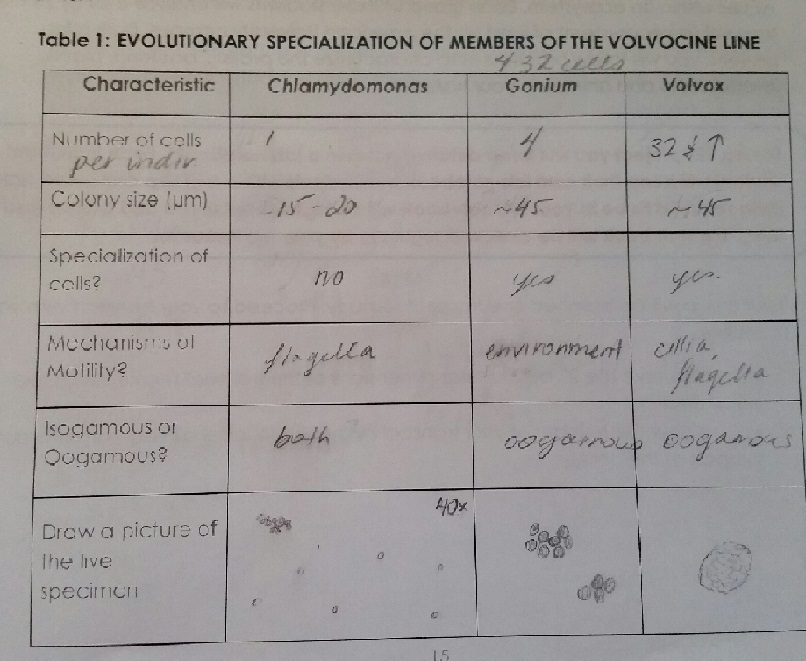 Table 1: EVOLUTIONARY SPECIALIZATION OF MEMBERS OF THE VOLVOCINE LINE
432 cells
Characteristic Chlamydomonas Gonium Volvox
Number of cells 1 4 32 & ↑
per indiv
Colony size (um) 15-20 ~45 ~45
Specialization of
cells? no yes yes.
Mechanisms of flagella environment cilia,
Motility? flagella
Isogamous or both oogamous oogamous
Oogamous?
40x
Draw a picture of
the live
specimen
15